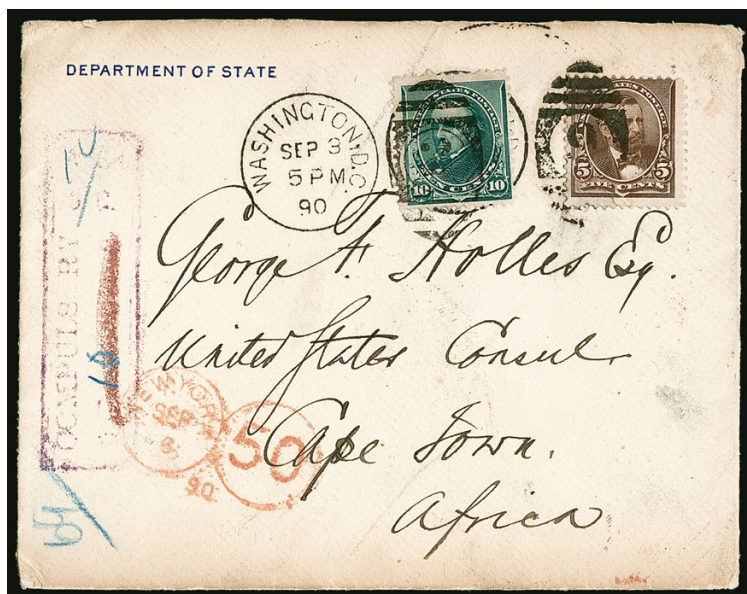 DEPARTMENT OF STATE
WASHINGTON, D.C.
SEP 3
5 PM
90
UNITED STATES POSTAGE
10 10
TEN CENTS
UNITED STATES POSTAGE
5 5
FIVE CENTS
George F. Holles Esq.
United States Consul
Cape Town.
Africa
NEW YORK
SEP
6
90
50
10